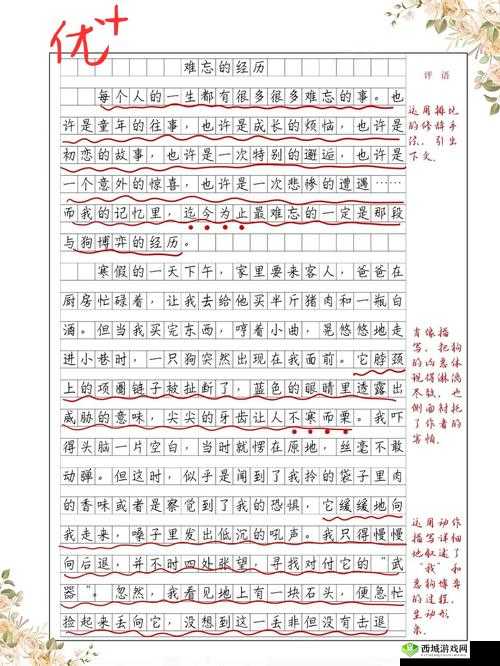 优+
难忘的经历
每个人的一生都有很多很多难忘的事。也
许是童年的往事，也许是成长的烦恼，也许是
初恋的故事，也许是一次特别的邂逅，也许是
一个意外的惊喜，也许是一次悲惨的遭遇……
而我的记忆里，迄今为止最难忘的一定是那段
与狗博弈的经历。
寒假的一天下午，家里要来客人，爸爸在
厨房忙碌着，让我去给他买半斤猪肉和一瓶白
酒。但当我买完东西，哼着小曲，晃悠悠地走
进小巷时，一只狗突然出现在我面前。它脖颈
上的项圈链子被扯断了，蓝色的眼睛里透露出
威胁的意味，尖尖的牙齿让人不寒而栗。我吓
得头脑一片空白，当时就愣在原地，丝毫不敢
动弹。但这时，似乎是闻到了我拎的袋子里肉
的香味或者是察觉到了我的恐惧，它缓缓地向
我走来，嗓子里发出低沉的吼声。我只得慢慢
向后退，并不时四处张望，寻找对付它的“武
器”。忽然，我看见地上有一块石头，便急忙
捡起来丢向它，没想到这一丢非但没有击退
评语
运用排比
的修辞手
法，引出
下文。
肖像描
写，把狗
的凶恶体
现得淋漓
尽致，也
侧面衬托
了作者的
害怕。
运用动作
描写详细
地叙述了
“我”和
恶狗博弈
的过程，
生动形
象。
西城游戏网